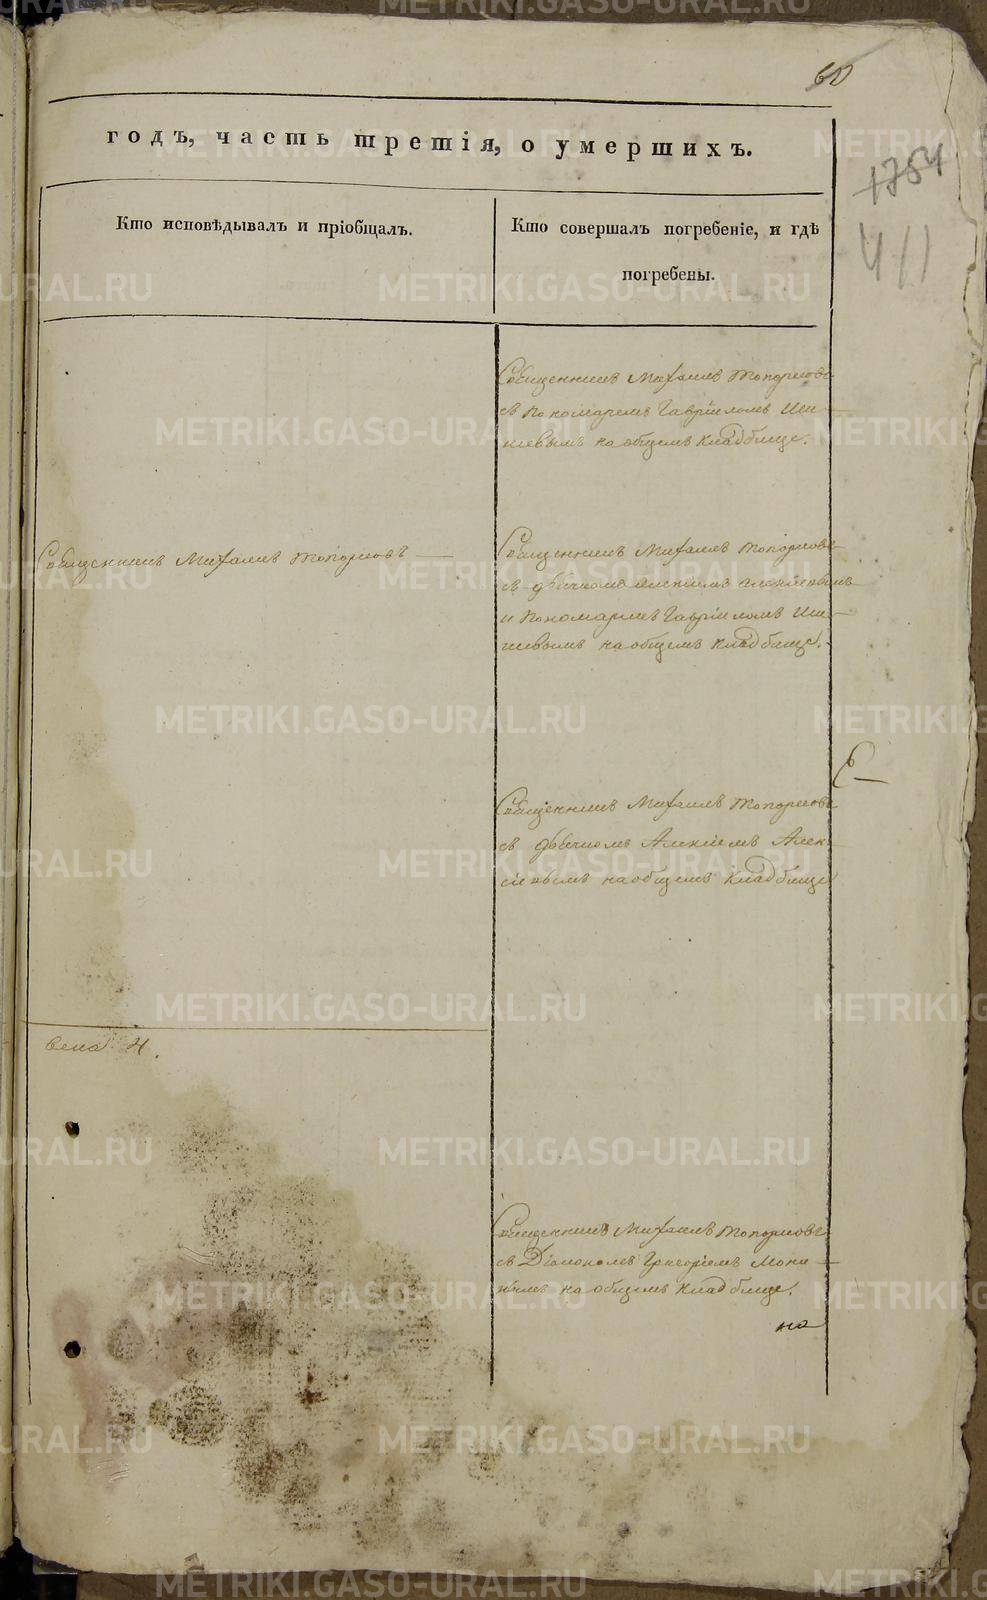 60
годъ, часть третія, о умершихъ.
1754
411
Кто исповѣдывалъ и пріобщалъ.
Кто совершалъ погребеніе, и гдѣ
погребены.
Священникъ Михаилъ Топорковъ
съ Пономаремъ Гавріиломъ Ши-
шевымъ на общемъ кладбище.
Священникъ Михаилъ Топорковъ
Священникъ Михаилъ Топорковъ
съ дьячкомъ Алексіемъ Алексіевымъ
и Пономаремъ Гавріиломъ Ши-
шевымъ на общемъ кладбище.
Священникъ Михаилъ Топорковъ
съ дьячкомъ Алексіемъ Алек-
сіевымъ на общемъ кладбище
Священникъ Михаилъ Топорковъ
съ Діакономъ Григоріемъ
на общемъ кладбище.
на
METRIKI.GASO-URAL.RU